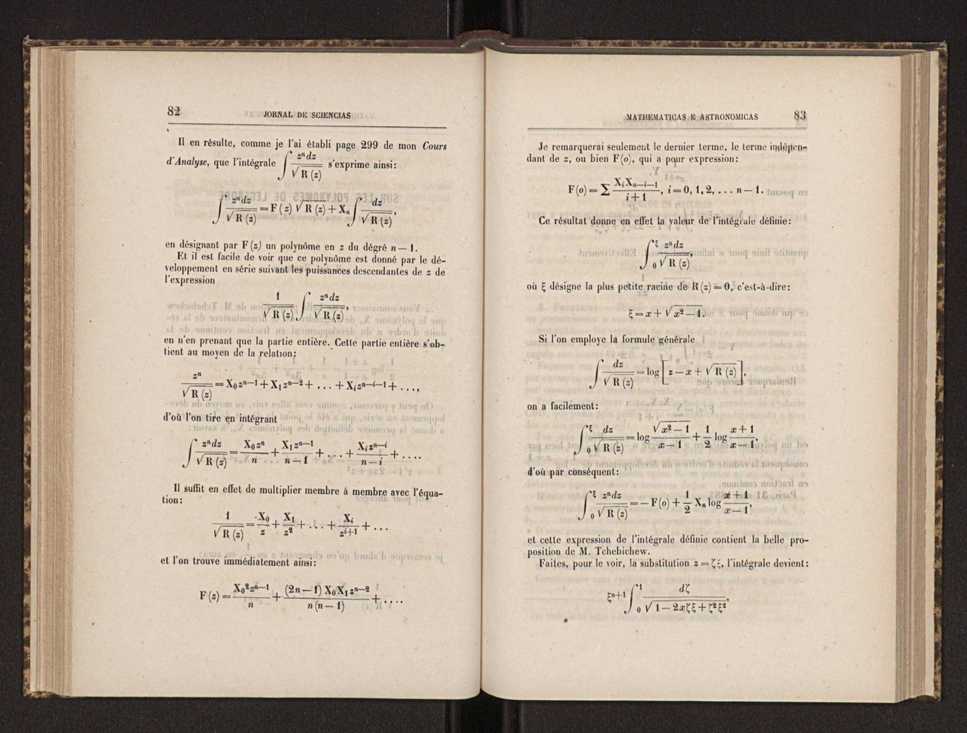 82
JORNAL DE SCIENCIAS
Il en résulte, comme je l'ai établi page 299 de mon Cours
d'Analyse, que l'intégrale ∫ zⁿdz / √R(z) s'exprime ainsi:
∫ zⁿdz / √R(z) = F(z) √R(z) + Xₙ ∫ dz / √R(z),
en désignant par F(z) un polynôme en z du dégré n — 1.
Et il est facile de voir que ce polynôme est donné par le dé-
veloppement en série suivant les puissances descendantes de z de
l'expression
1 / √R(z) ∫ zⁿdz / √R(z),
en n'en prenant que la partie entière. Cette partie entière s'ob-
tient au moyen de la relation:
zⁿ / √R(z) = X₀zⁿ⁻¹ + X₁zⁿ⁻² + . . . + Xᵢzⁿ⁻ⁱ⁻¹ + . . . ,
d'où l'on tire en intégrant
∫ zⁿdz / √R(z) = X₀zⁿ / n + X₁zⁿ⁻¹ / n—1 + . . . + Xᵢzⁿ⁻ⁱ / n—i + . . . .
Il suffit en effet de multiplier membre à membre avec l'équa-
tion:
1 / √R(z) = X₀ / z + X₁ / z² + . . . + Xᵢ / zⁱ⁺¹ + . . .
et l'on trouve immédiatement ainsi:
F(z) = X₀²zⁿ⁻¹ / n + (2n—1) X₀X₁zⁿ⁻² / n(n—1) + . . . .
MATHEMATICAS E ASTRONOMICAS
83
Je remarquerai seulement le dernier terme, le terme indépen-
dant de z, ou bien F(o), qui a pour expression:
F(o) = Σ XᵢXₙ₋ᵢ₋₁ / i+1, i = 0, 1, 2, . . . n — 1.
Ce résultat donne en effet la valeur de l'intégrale définie:
∫₀^ξ zⁿdz / √R(z),
où ξ désigne la plus petite racine de R(z) = 0, c'est-à-dire:
ξ = x + √x² — 1.
Si l'on employe la formule générale
∫ dz / √R(z) = log [z — x + √R(z)],
on a facilement:
∫₀^ξ dz / √R(z) = log √x² — 1 / x — 1 + 1/2 log x + 1 / x — 1,
d'où par conséquent:
∫₀^ξ zⁿdz / √R(z) = — F(o) + 1/2 Xₙ log x + 1 / x — 1,
et cette expression de l'intégrale définie contient la belle pro-
position de M. Tchebichew.
Faites, pour le voir, la substitution z = ζξ, l'intégrale devient:
ξⁿ⁺¹ ∫₀¹ dζ / √1 — 2xζξ + ζ²ξ²,